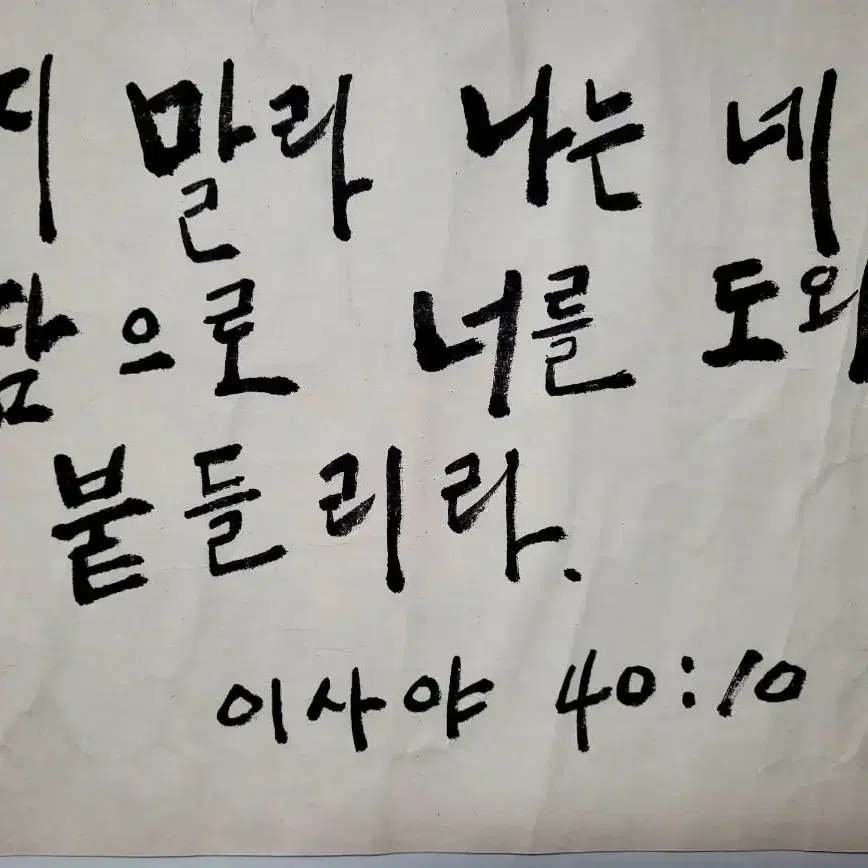 지 말라 나는 네
담으로 너를 도와
붙들리라.
이사야 40:10